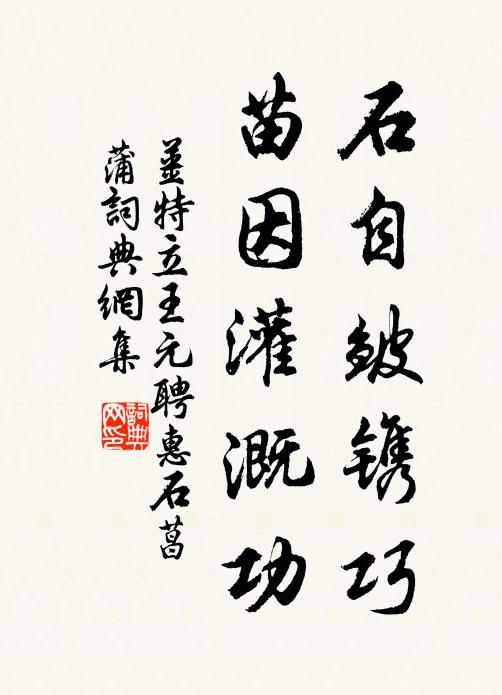 石自皴镌巧
苗因灌溉功
薑特立王元聘惠石菖
蒲詞典網集
詞典
网印